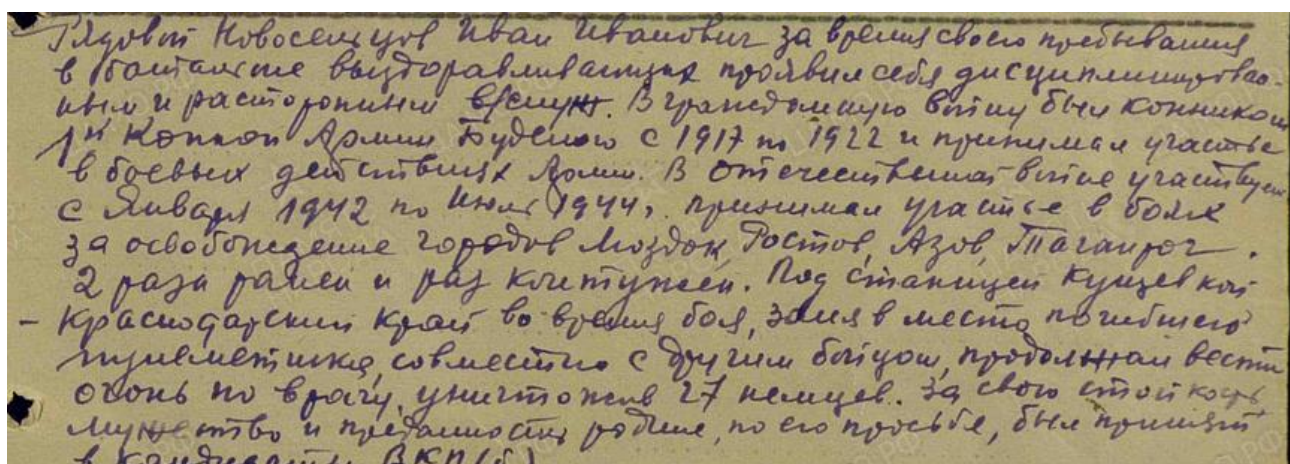 Рядовой Новосельцов Иван Иванович за время своего пребывания
в батальоне выздоравливающих проявил себя дисциплинирован-
ным и расторопным в/служ. В гражданскую войну был конником
1й Конной Армии Буденого с 1917 по 1922 и принимал участье
в боевых действиях Армии. В отечественной войне участвует
с Января 1942 по Июль 1944г. принимал участье в боях
за освобождение городов Моздок, Ростов, Азов, Таганрог.
2 раза ранен и раз контужен. Под станицей Кущевкой
- Краснодарский край во время боя, заняв место погибшего
пулеметчика, совместно с другим бойцом, продолжал вести
огонь по врагу, уничтожив 27 немцев. За свою стойкость
мужество и преданность родине, по его просьбе, был принят
в кандидаты ВКП(б)